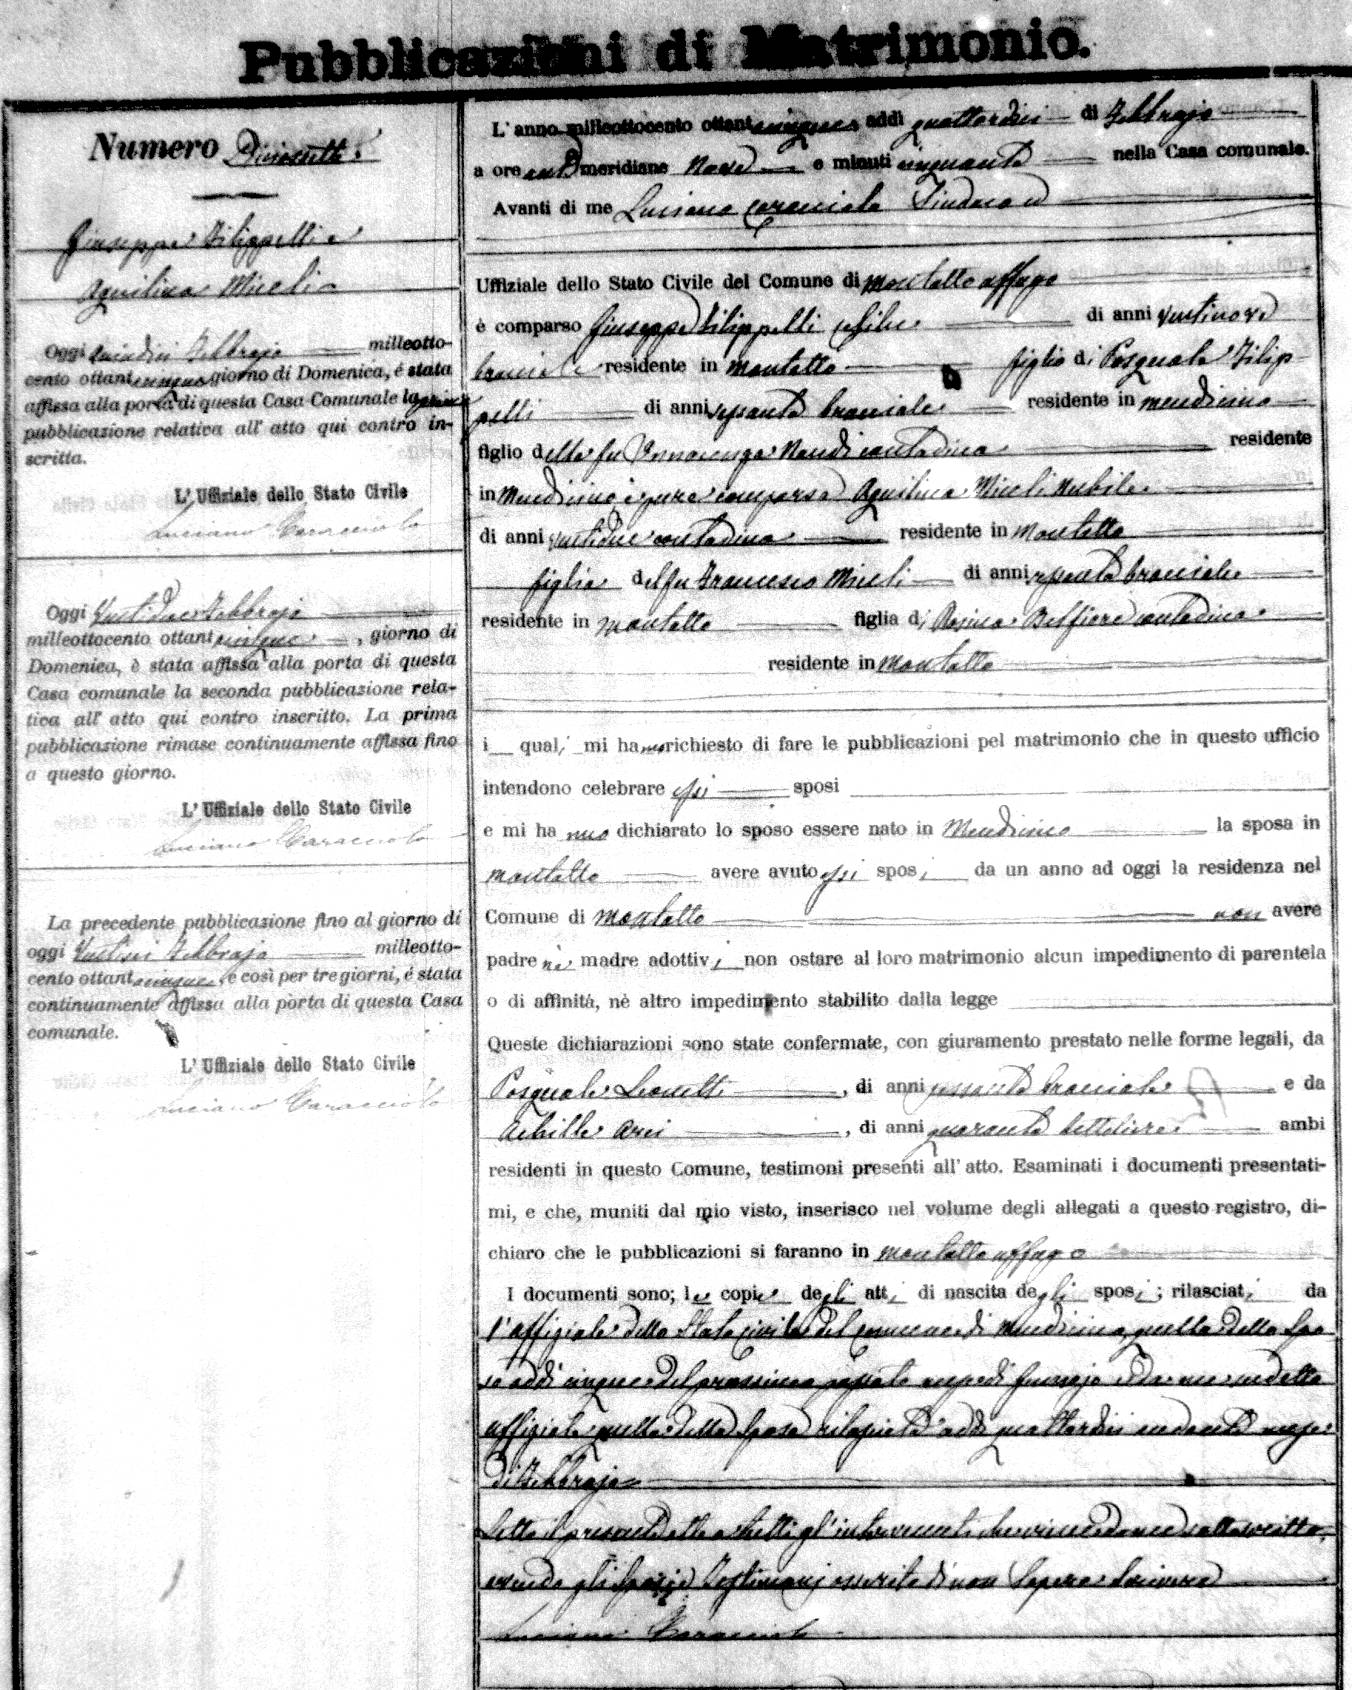 Pubblicazioni di Matrimonio.
Numero Diciassette.
Giuseppe Filippelli e
Aquilina Miceli
Oggi quindici Febbrajo milleotto-
cento ottantacinque giorno di Domenica, è stata
affissa alla porta di questa Casa Comunale la prima
pubblicazione relativa all' atto qui contro in-
scritta.
L' Uffiziale dello Stato Civile
Luciano Caracciolo
Oggi Ventidue Febbrajo
milleottocento ottantacinque, giorno di
Domenica, è stata affissa alla porta di questa
Casa comunale la seconda pubblicazione rela-
tiva all' atto qui contro inscritto. La prima
pubblicazione rimase continuamente affissa fino
a questo giorno.
L' Uffiziale dello Stato Civile
Luciano Caracciolo
La precedente pubblicazione fino al giorno di
oggi Ventisei Febbrajo milleotto-
cento ottantacinque, e così per tre giorni, è stata
continuamente affissa alla porta di questa Casa
comunale.
L' Uffiziale dello Stato Civile
Luciano Caracciolo
L' anno milleottocento ottantacinque addì quattordici di Febbrajo
a ore antimeridiane Nove e minuti cinquanta nella Casa comunale.
Avanti di me Luciano Caracciolo Sindaco
Uffiziale dello Stato Civile del Comune di Montalto Uffugo
è comparso Giuseppe Filippelli celibe di anni ventinove
bracciale residente in Montalto figlio di Pasquale Filip-
pelli di anni sessanta bracciale residente in Mendicino
figlio della fu Innocenza Naudi contadina residente
in Mendicino è pure comparsa Aquilina Miceli Nubile
di anni ventidue contadina residente in Montalto
figlia del fu Francesco Miceli di anni sessanta bracciale
residente in Montalto figlia di Rosina Belfiore contadina
residente in Montalto
i quali mi hanno richiesto di fare le pubblicazioni pel matrimonio che in questo ufficio
intendono celebrare essi sposi
e mi hanno dichiarato lo sposo essere nato in Mendicino la sposa in
Montalto avere avuto essi sposi da un anno ad oggi la residenza nel
Comune di Montalto non avere
padre nè madre adottivi non ostare al loro matrimonio alcun impedimento di parentela
o di affinità, nè altro impedimento stabilito dalla legge
Queste dichiarazioni sono state confermate, con giuramento prestato nelle forme legali, da
Pasquale Leonetti, di anni sessanta bracciale e da
Achille Arci, di anni quaranta bettoliere ambi
residenti in questo Comune, testimoni presenti all' atto. Esaminati i documenti presentati-
mi, e che, muniti dal mio visto, inserisco nel volume degli allegati a questo registro, di-
chiaro che le pubblicazioni si faranno in Montalto Uffugo
I documenti sono; le copie degli atti di nascita degli sposi; rilasciati da
l'uffiziale dello Stato Civile del Comune di Mendicino quella dello Spo
so addì cinque del prossimo passato mese di Gennajo e da me sudetto
uffiziale quella della Sposa rilasciata addì quattordici andante mese
di Febbrajo
Letto il presente atto a tutti gl'intervenuti che viene da me sottoscritto,
avendo gli Sposi e Testimonj asserito di non sapere scrivere
Luciano Caracciolo